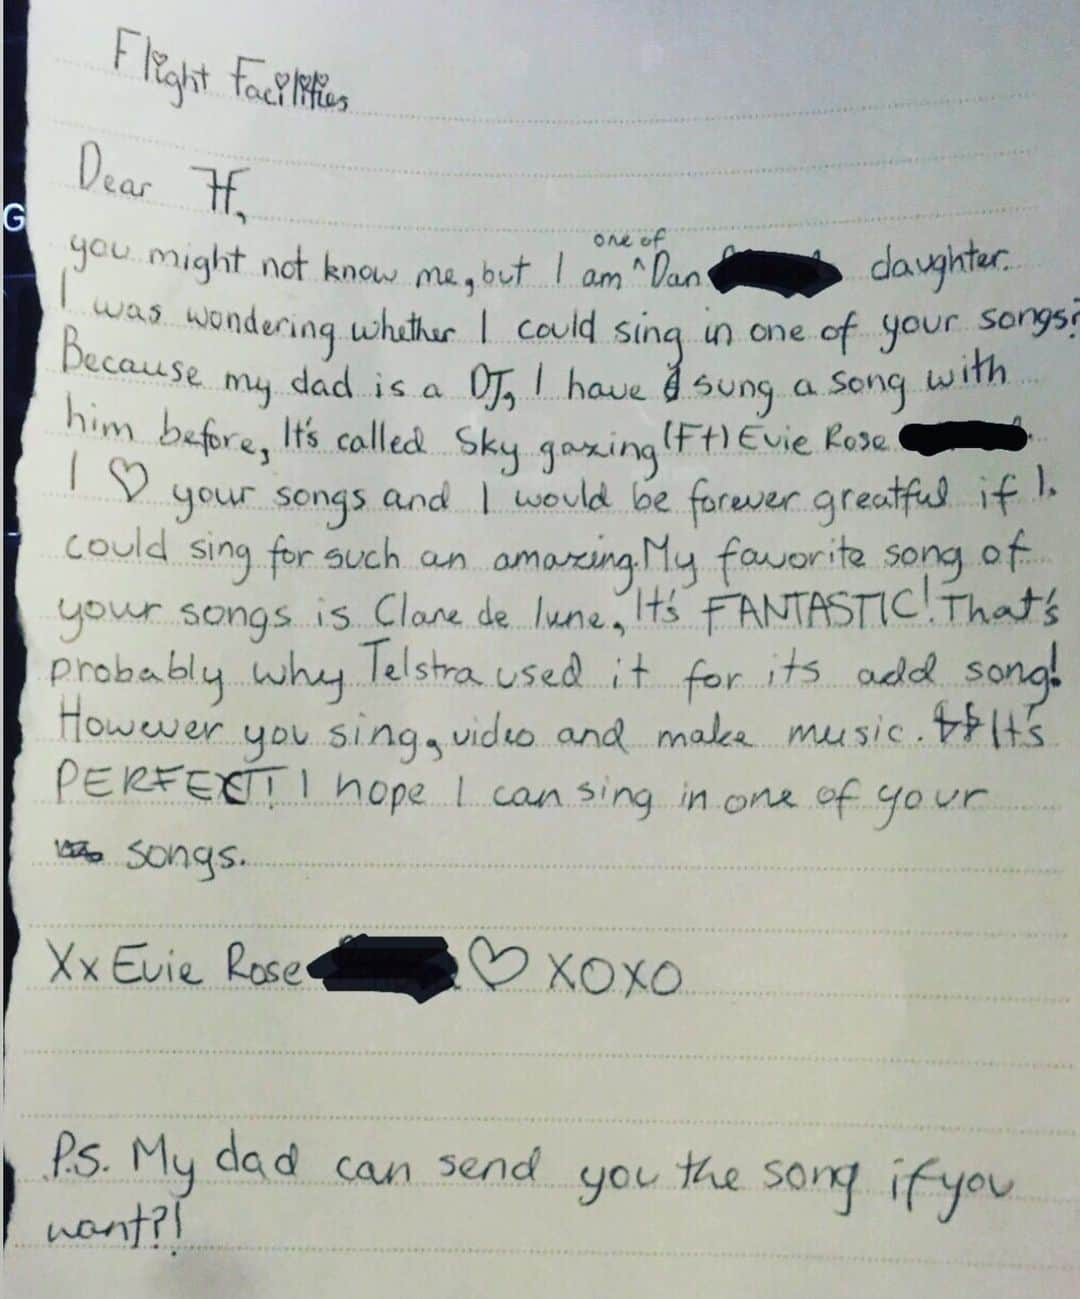 Flight Facilities
Dear FF,
one of
you might not know me, but I am ^ Dan daughter.
I was wondering whether I could sing in one of your songs?
Because my dad is a DJ, I have sung a song with
him before, It's called Sky gazing (Ft) Evie Rose
I ♡ your songs and I would be forever greatful if I
could sing for such an amazing. My favorite song of
your songs is Clare de lune, It's FANTASTIC! That's
probably why Telstra used it for its add song!
However you sing, video and make music. It's
PERFECT! I hope I can sing in one of your
songs.
Xx Evie Rose ♡ XOXO
P.S. My dad can send you the song if you
want?!
G